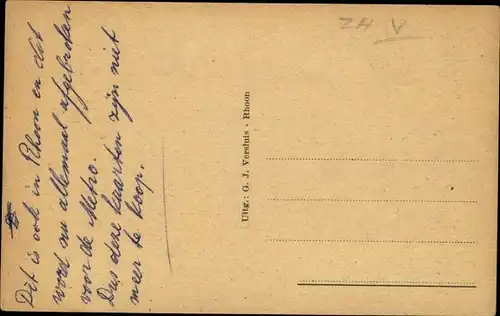 Dit is ook in Rhoon en dit
word nu allemaal afgebroken
voor de Metro.
Dus deze kaarten zijn niet
meer te koop.
Uitg.: G. J. Versluis - Rhoon
ZH V